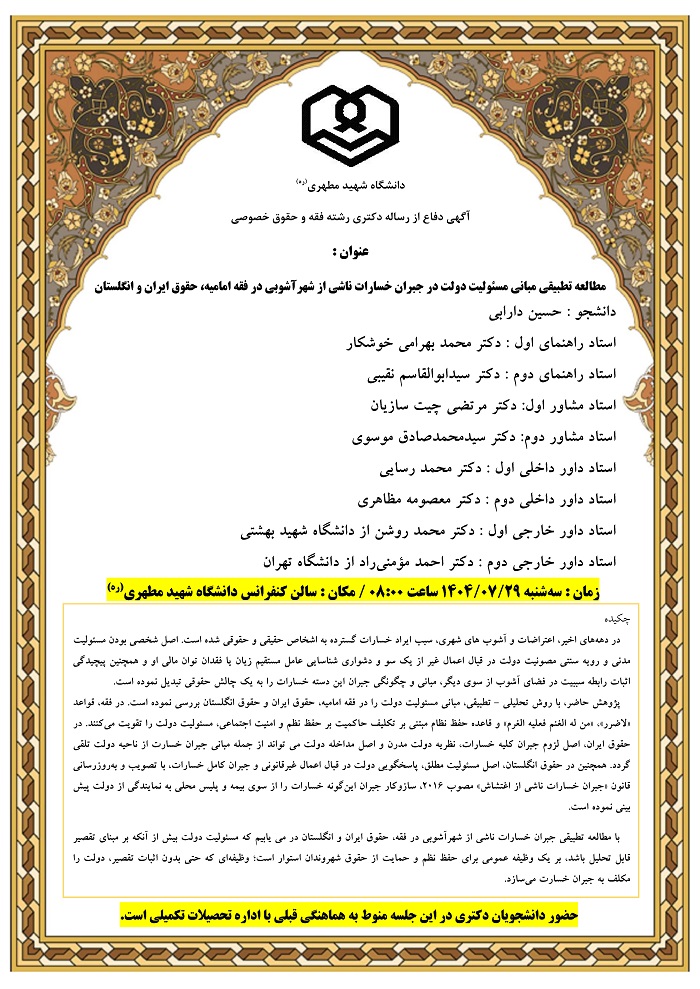 دانشگاه شهید مطهری(ره)
آگهی دفاع از رساله دکتری رشته فقه و حقوق خصوصی
عنوان :
مطالعه تطبیقی مبانی مسئولیت دولت در جبران خسارات ناشی از شهرآشوبی در فقه امامیه، حقوق ایران و انگلستان
دانشجو : حسین دارابی
استاد راهنمای اول : دکتر محمد بهرامی خوشکار
استاد راهنمای دوم : دکتر سیدابوالقاسم نقیبی
استاد مشاور اول: دکتر مرتضی چیت سازیان
استاد مشاور دوم: دکتر سیدمحمدصادق موسوی
استاد داور داخلی اول : دکتر محمد رسایی
استاد داور داخلی دوم : دکتر معصومه مظاهری
استاد داور خارجی اول : دکتر محمد روشن از دانشگاه شهید بهشتی
استاد داور خارجی دوم : دکتر احمد مؤمنی‌راد از دانشگاه تهران
زمان : سه‌شنبه ۱۴۰۴/۰۷/۲۹ ساعت ۰۸:۰۰ / مکان : سالن کنفرانس دانشگاه شهید مطهری(ره)
چکیده
در دهه‌های اخیر، اعتراضات و آشوب های شهری، سبب ایراد خسارات گسترده به اشخاص حقیقی و حقوقی شده است. اصل شخصی بودن مسئولیت
مدنی و رویه سنتی مصونیت دولت در قبال اعمال غیر از یک سو و دشواری شناسایی عامل مستقیم زیان یا فقدان توان مالی او و همچنین پیچیدگی
اثبات رابطه سببیت در فضای آشوب از سوی دیگر، مبانی و چگونگی جبران این دسته خسارات را به یک چالش حقوقی تبدیل نموده است.
پژوهش حاضر، با روش تحلیلی - تطبیقی، مبانی مسئولیت دولت را در فقه امامیه، حقوق ایران و حقوق انگلستان بررسی نموده است. در فقه، قواعد
«لاضرر»، «من له الغنم فعلیه الغرم» و قاعده حفظ نظام مبتنی بر تکلیف حاکمیت بر حفظ نظم و امنیت اجتماعی، مسئولیت دولت را تقویت می‌کنند. در
حقوق ایران، اصل لزوم جبران کلیه خسارات، نظریه دولت مدرن و اصل مداخله دولت می تواند از جمله مبانی جبران خسارت از ناحیه دولت تلقی
گردد. همچنین در حقوق انگلستان، اصل مسئولیت مطلق، پاسخگویی دولت در قبال اعمال غیرقانونی و جبران کامل خسارات، با تصویب و به‌روزرسانی
قانون «جبران خسارات ناشی از اغتشاش» مصوب ۲۰۱۶، سازوکار جبران این‌گونه خسارات را از سوی بیمه و پلیس محلی به نمایندگی از دولت پیش
بینی نموده است.
با مطالعه تطبیقی جبران خسارات ناشی از شهرآشوبی در فقه، حقوق ایران و انگلستان در می یابیم که مسئولیت دولت بیش از آنکه بر مبنای تقصیر
قابل تحلیل باشد، بر یک وظیفه عمومی برای حفظ نظم و حمایت از حقوق شهروندان استوار است؛ وظیفه‌ای که حتی بدون اثبات تقصیر، دولت را
مکلف به جبران خسارت می‌سازد.
حضور دانشجویان دکتری در این جلسه منوط به هماهنگی قبلی با اداره تحصیلات تکمیلی است.